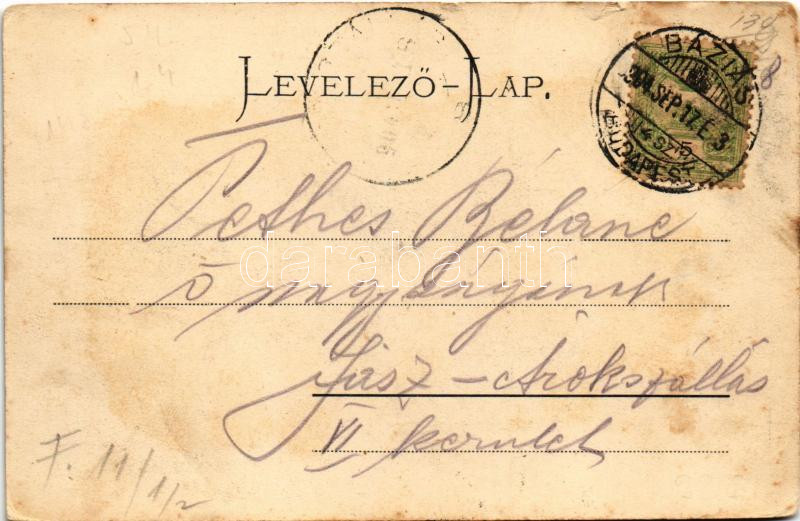 LEVELEZŐ-LAP.
BÁZIÁS
904.SEP.17.E.3
BUDAPEST
Pethes Béláné
ő nagyságának
Jász-Árokszállás
VI kerület
F. 11/1/2
darabanth